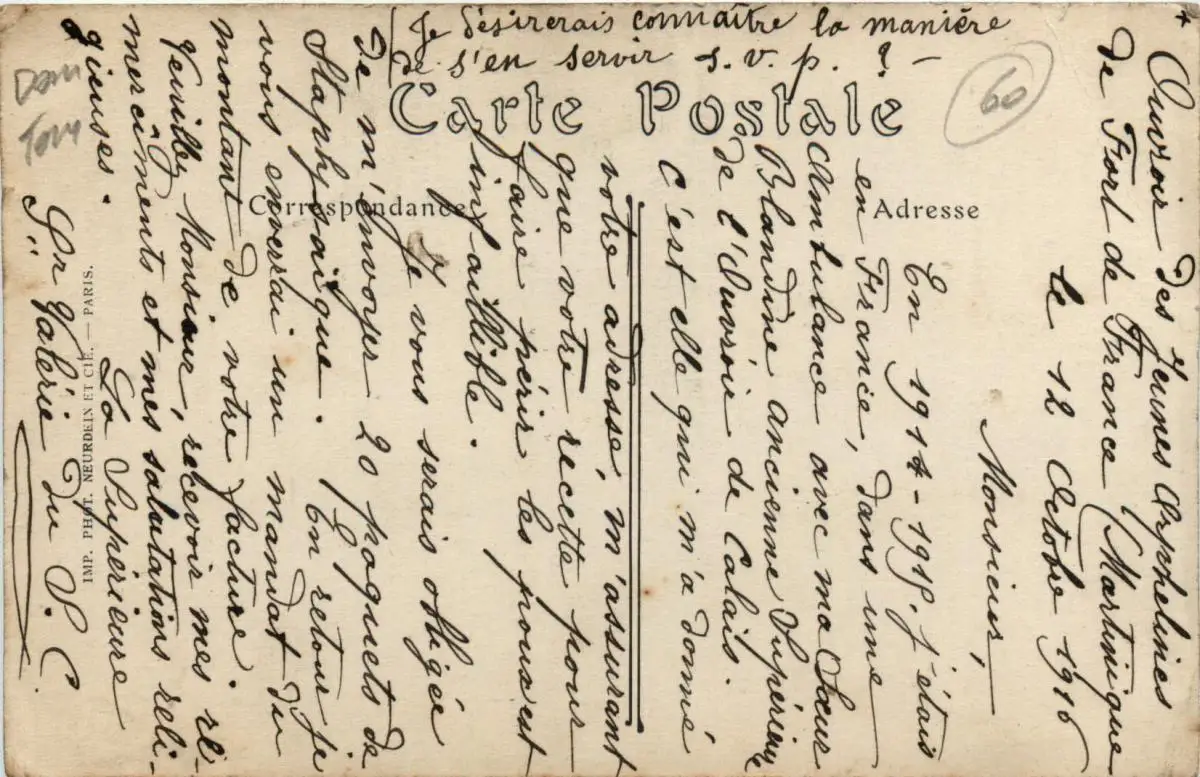 Ouvroir des Jeunes Orphelines
de Fort de France (Martinique
le 12 Octobre 1916
Monsieur,
En 1914-1915 j'étais
en France, dans une
Ambulance avec ma Sœur
Blandine ancienne Supérieure
de l'Ouvroir de Calais.
C'est elle qui m'a donné
votre adresse, m'assurant
que votre recette pour
faire périr les poux est
infaillible.
Je vous serais obligée
de m'envoyer 20 paquets de
Staphysaigue. En retour je
vous enverrai un mandat du
montant de votre facture.
Veuillez Monsieur, recevoir mes re-
merciments et mes salutations reli-
gieuses.
La Supérieure
Sr Valérie du S. C.
Je désirerais connaître la manière
de s'en servir s. v. p. ? -
Carte Postale
Correspondance
Adresse
IMP. PHOT. NEURDEIN ET CIE. — PARIS.
60
Dom
Tom